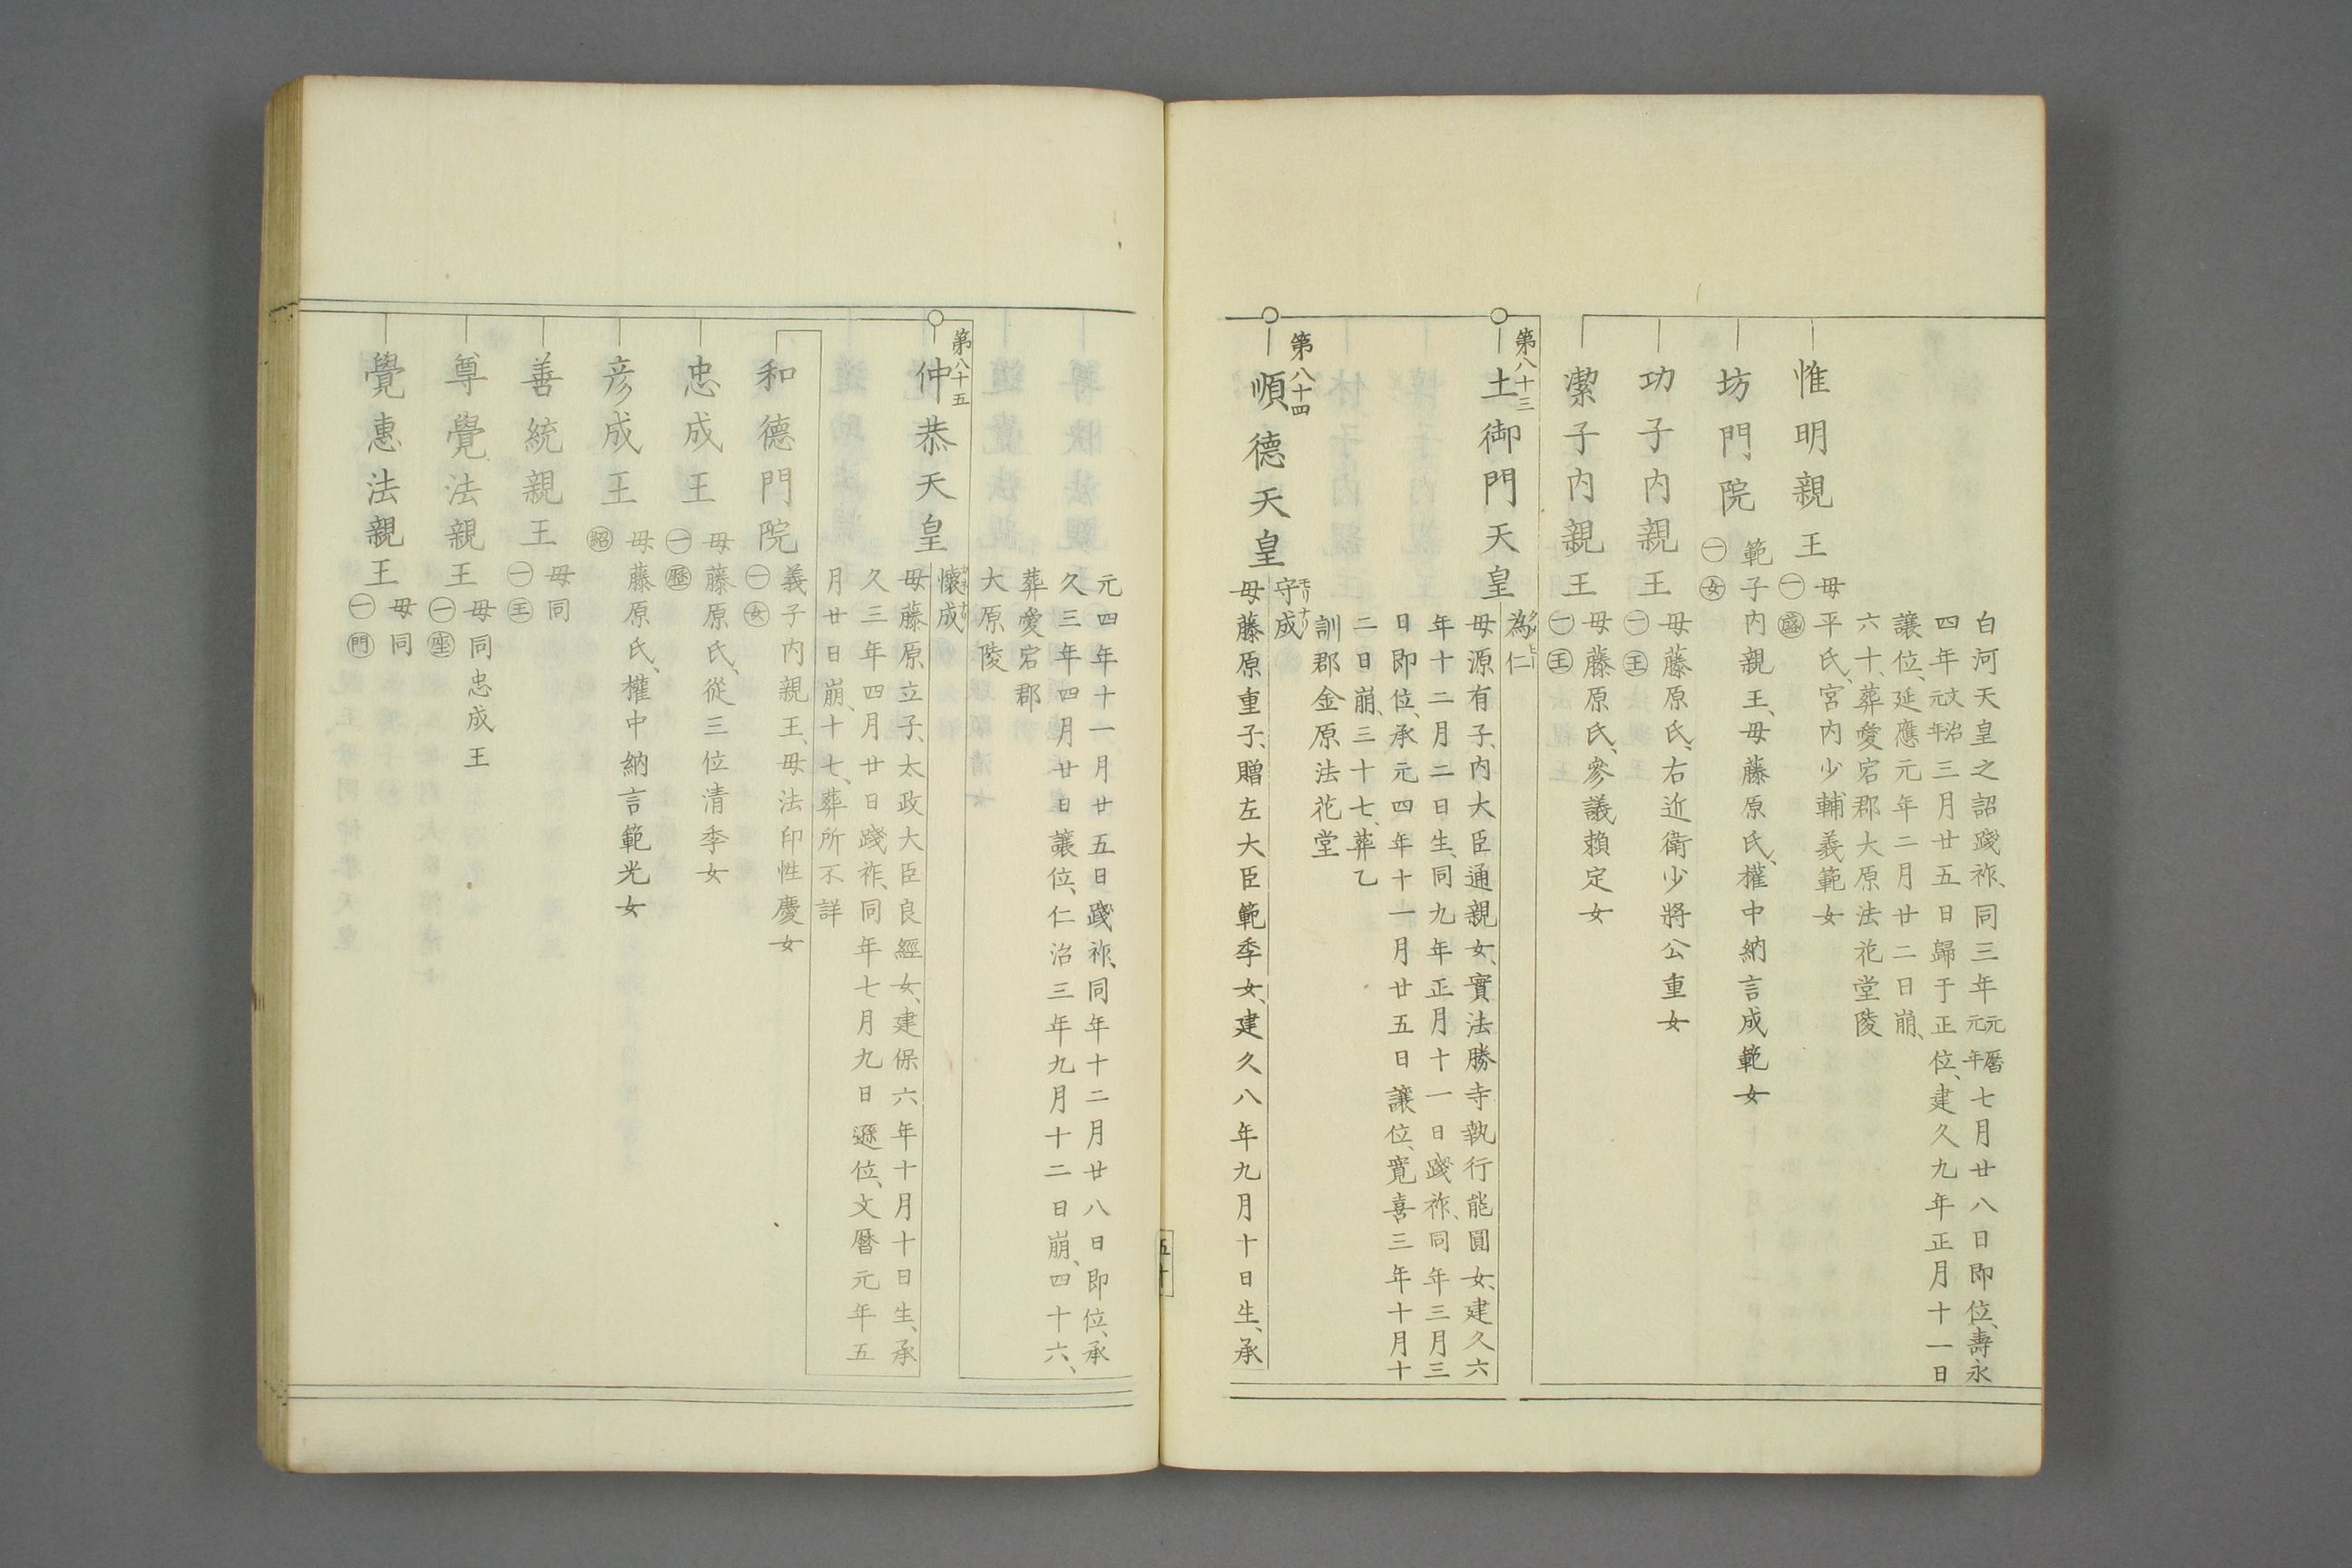 白河天皇之詔踐祚、同三年元曆元年七月廿八日即位、壽永
四年文治元年三月廿五日歸于正位、建久九年正月十一日
讓位、延應元年二月廿二日崩、
六十、葬愛宕郡大原法花堂陵
惟明親王 母平氏、宮內少輔義範女
㊀
坊門院 範子內親王、母藤原氏、權中納言成範女
㊀㊛
功子內親王 母藤原氏、右近衛少將公重女
㊀
潔子內親王 母藤原氏、參議賴定女
㊀
第八十三
土御門天皇
為仁
母源有子、內大臣通親女、實法勝寺執行能圓女、建久六
年十二月二日生、同九年正月十一日踐祚、同年三月三
日即位、承元四年十一月廿五日讓位、寬喜三年十月十
二日崩、三十七、葬乙
訓郡金原法花堂
第八十四
順德天皇
守成
母藤原重子、贈左大臣範季女、建久八年九月十日生、承
五十
元四年十一月廿五日踐祚、同年十二月廿八日即位、承
久三年四月廿日讓位、仁治三年九月十二日崩、四十六、
葬愛宕郡
大原陵
第八十五
仲恭天皇
懷成
母藤原立子、太政大臣良經女、建保六年十月十日生、承
久三年四月廿日踐祚、同年七月九日遜位、文曆元年五
月廿日崩、十七、葬所不詳
和德門院 義子內親王、母法印性慶女
㊀㊛
忠成王 母藤原氏、從三位清季女
㊀
彥成王 母藤原氏、權中納言範光女
善統親王 母同
㊀
尊覺法親王 母同忠成王
㊀
覺惠法親王 母同
㊀